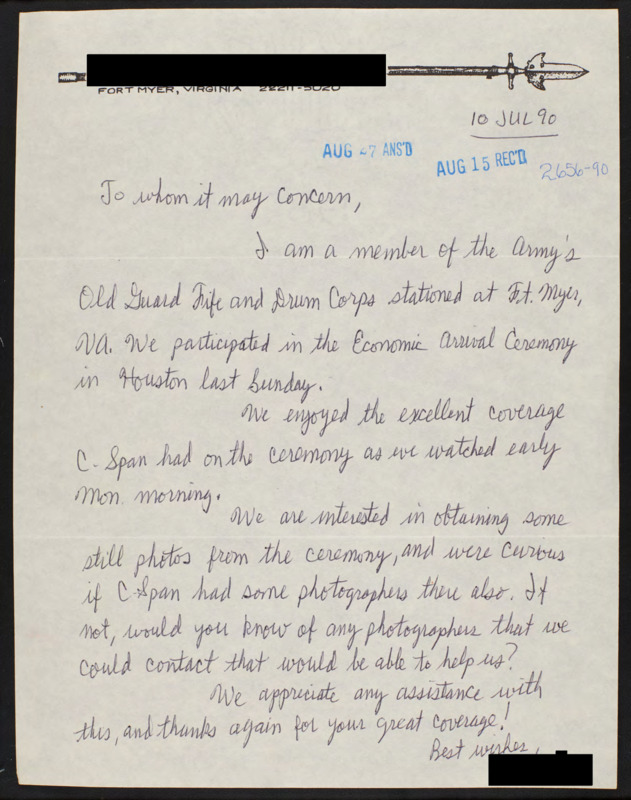 FORT MYER, VIRGINIA 22211-5020
10 JUL 90
AUG 27 ANS'D
AUG 15 REC'D
2656-90
To whom it may concern,
I am a member of the Army's
Old Guard Fife and Drum Corps stationed at Ft. Myer,
VA. We participated in the Economic Arrival Ceremony
in Houston last Sunday.
We enjoyed the excellent coverage
C-Span had on the ceremony as we watched early
Mon. morning.
We are interested in obtaining some
still photos from the ceremony, and were curious
if C-Span had some photographers there also. If
not, would you know of any photographers that we
could contact that would be able to help us?
We appreciate any assistance with
this, and thanks again for your great coverage!
Best wishes,